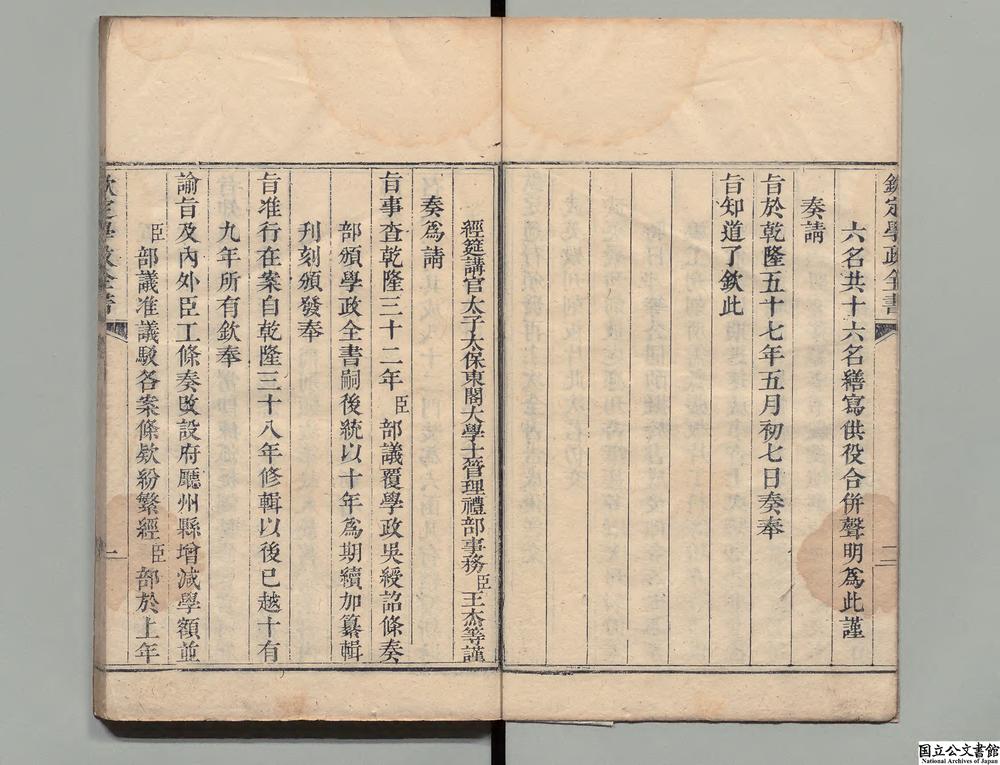 欽定學政全書
六名共十六名繕寫供役合併聲明爲此謹
奏請
旨於乾隆五十七年五月初七日奏奉
旨知道了欽此
二
經筵講官太子太保東閣大學士管理禮部事務臣王杰等謹
奏爲請
旨事查乾隆三十二年臣部議覆學政吳綬詔條奏
部頒學政全書嗣後統以十年爲期續加纂輯
刋刻頒發奉
旨准行在案自乾隆三十八年修輯以後已越十有
九年所有欽奉
諭旨及內外臣工條奏改設府廳州縣增減學額並
臣部議准議駁各案條欵紛繁經臣部於上年
欽定學政全書
一
国立公文書館
National Archives of Japan